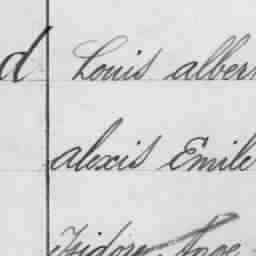 d Louis alber
alexis Emile
Isidore